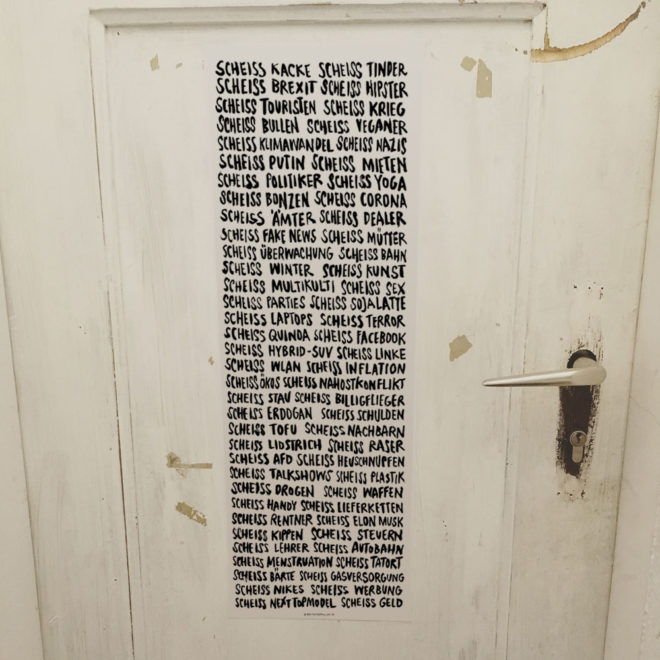 SCHEISS KACKE SCHEISS TINDER
SCHEISS BREXIT SCHEISS HIPSTER
SCHEISS TOURISTEN SCHEISS KRIEG
SCHEISS BULLEN SCHEISS VEGANER
SCHEISS KLIMAWANDEL SCHEISS NAZIS
SCHEISS PUTIN SCHEISS MIETEN
SCHEISS POLITIKER SCHEISS YOGA
SCHEISS BONZEN SCHEISS CORONA
SCHEISS ÄMTER SCHEISS DEALER
SCHEISS FAKE NEWS SCHEISS MÜTTER
SCHEISS ÜBERWACHUNG SCHEISS BAHN
SCHEISS WINTER SCHEISS KUNST
SCHEISS MULTIKULTI SCHEISS SEX
SCHEISS PARTIES SCHEISS SOJALATTE
SCHEISS LAPTOPS SCHEISS TERROR
SCHEISS QUINOA SCHEISS FACEBOOK
SCHEISS HYBRID-SUV SCHEISS LINKE
SCHEISS WLAN SCHEISS INFLATION
SCHEISS ÖKOS SCHEISS NAHOSTKONFLIKT
SCHEISS STAU SCHEISS BILLIGFLIEGER
SCHEISS ERDOGAN SCHEISS SCHULDEN
SCHEISS TOFU SCHEISS NACHBARN
SCHEISS LIDSTRICH SCHEISS RASER
SCHEISS AFD SCHEISS HEUSCHNUPFEN
SCHEISS TALKSHOWS SCHEISS PLASTIK
SCHEISS DROGEN SCHEISS WAFFEN
SCHEISS HANDY SCHEISS LIEFERKETTEN
SCHEISS RENTNER SCHEISS ELON MUSK
SCHEISS KIPPEN SCHEISS STEUERN
SCHEISS LEHRER SCHEISS AUTOBAHN
SCHEISS MENSTRUATION SCHEISS TATORT
SCHEISS BÄRTE SCHEISS GASVERSORGUNG
SCHEISS NIKES SCHEISS WERBUNG
SCHEISS NEXT TOPMODEL SCHEISS GELD